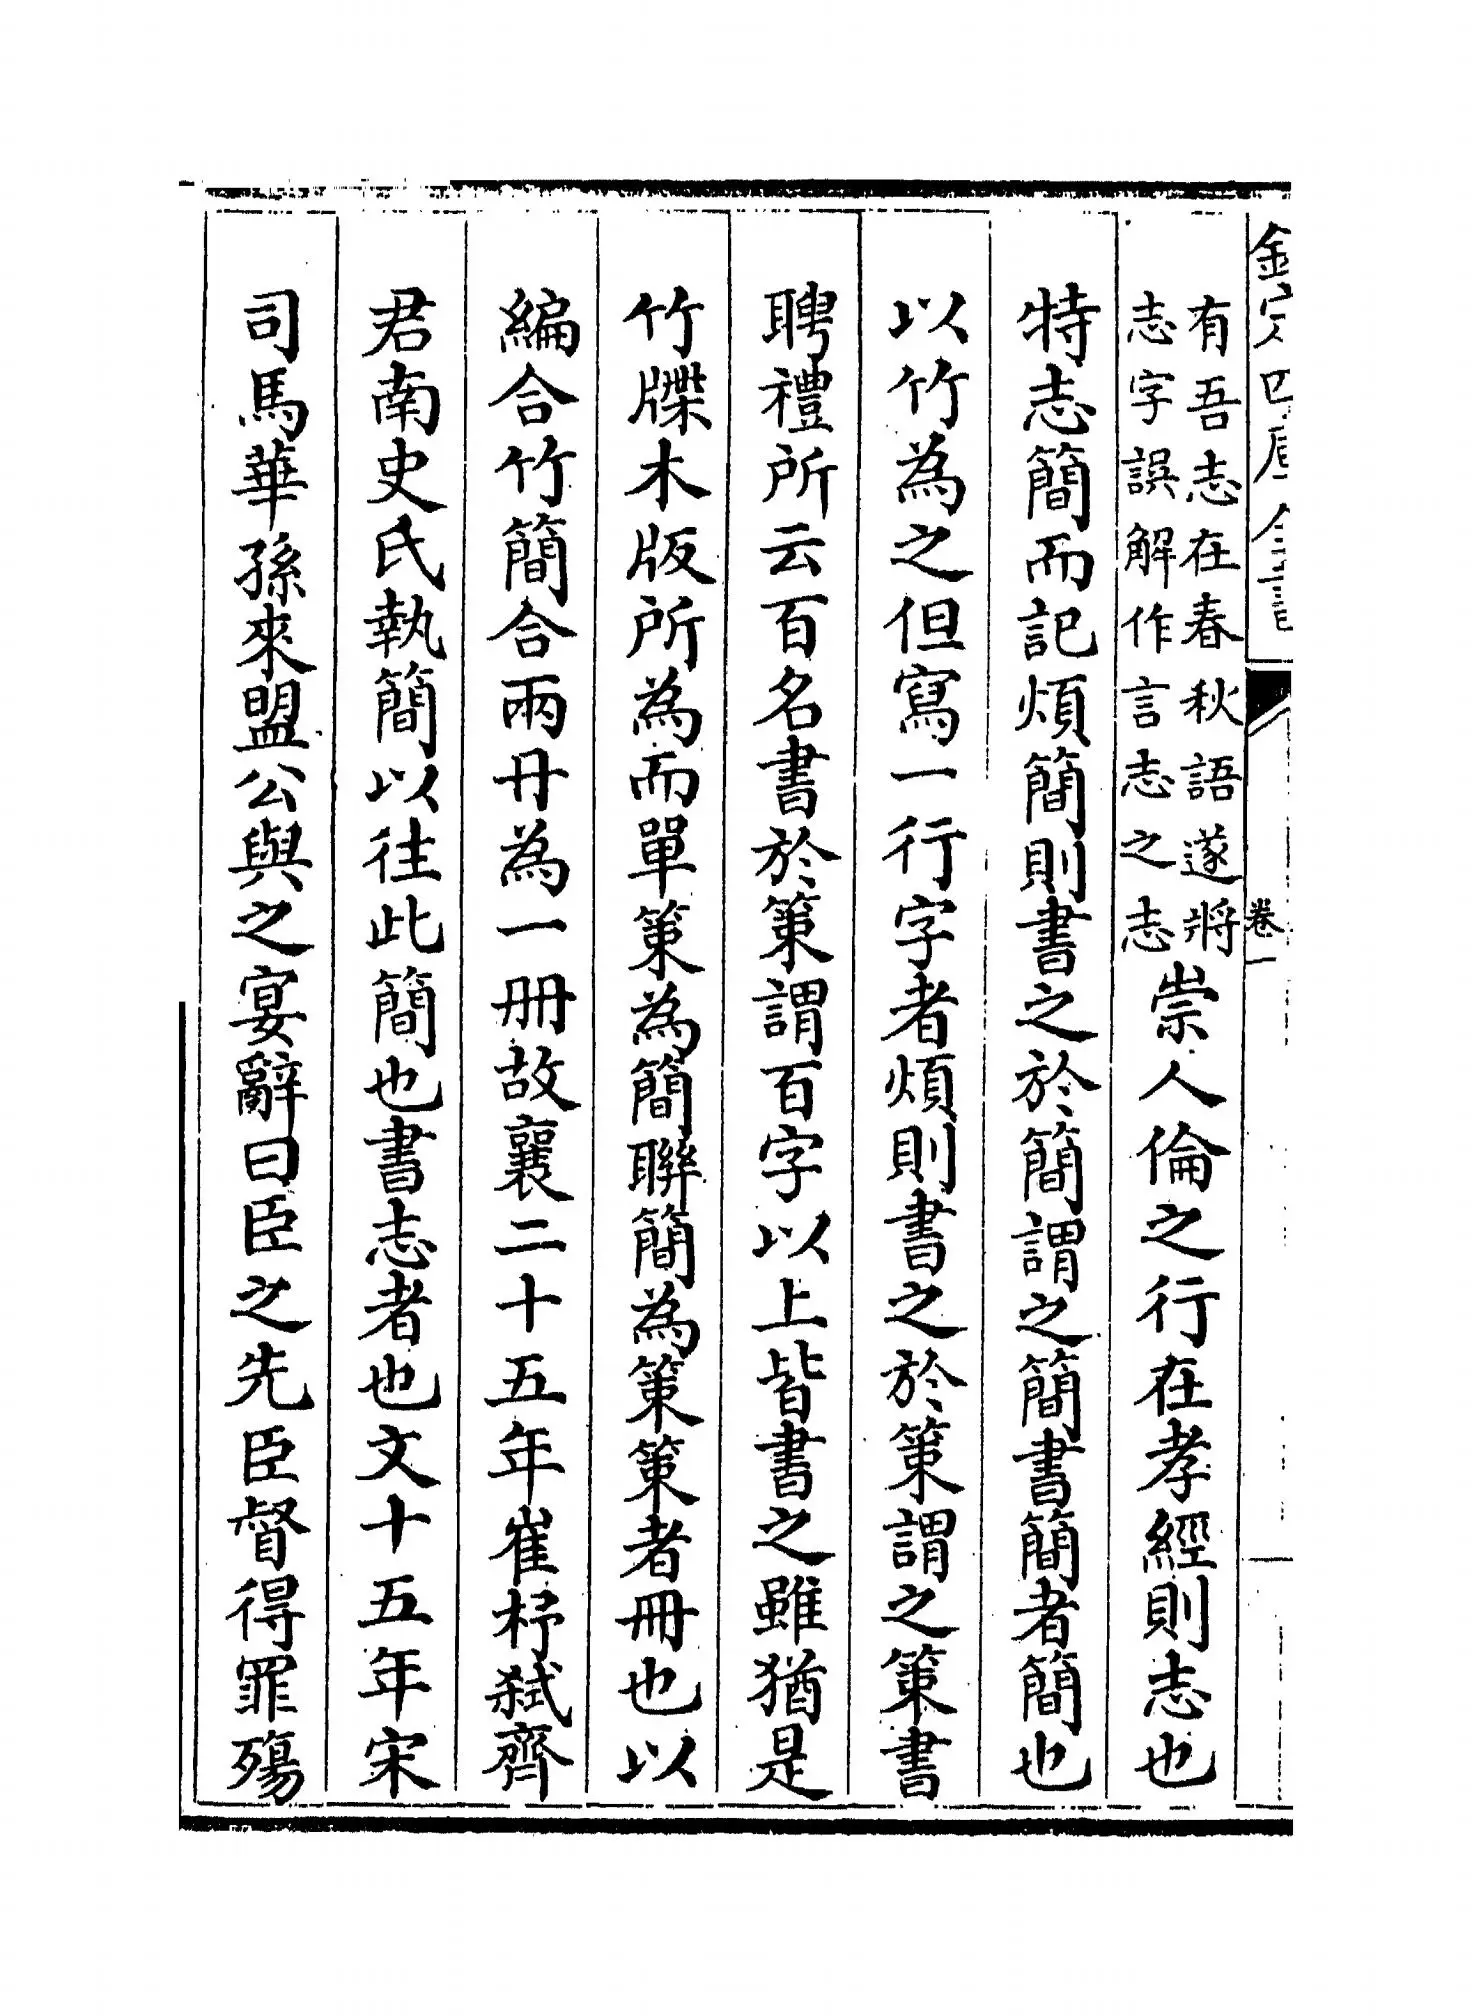 欽定四庫全書
卷一
有吾志在春秋語遂將
志字誤解作言志之志
崇人倫之行在孝經則志也
特志簡而記煩簡則書之於簡謂之簡書簡者簡也
以竹為之但寫一行字者煩則書之於策謂之策書
聘禮所云百名書於策謂百字以上皆書之雖猶是
竹牒木版所為而單策為簡聯簡為策策者冊也以
編合竹簡合兩冊為一冊故襄二十五年崔杼弑齊
君南史氏執簡以往此簡也書志者也文十五年宋
司馬華孫來盟公與之宴辭曰臣之先臣督得罪殤